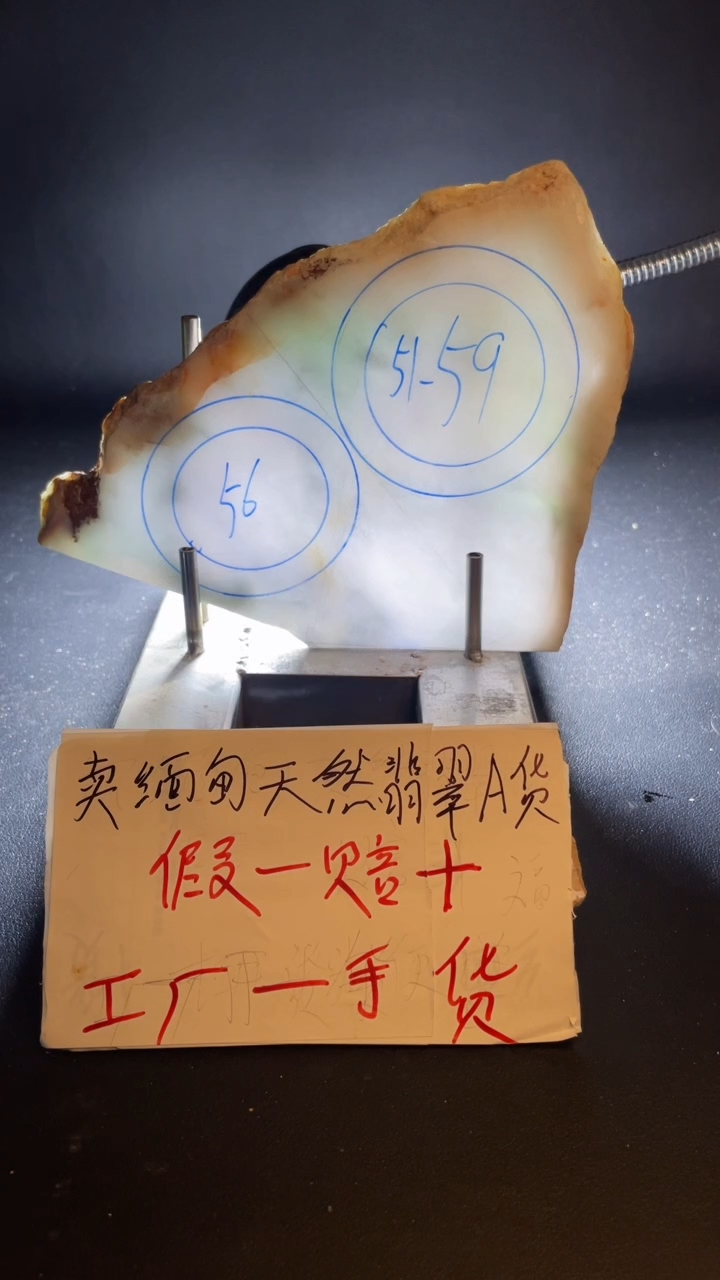 51-59
56
卖缅甸天然翡翠A货
假一赔十
工厂一手货